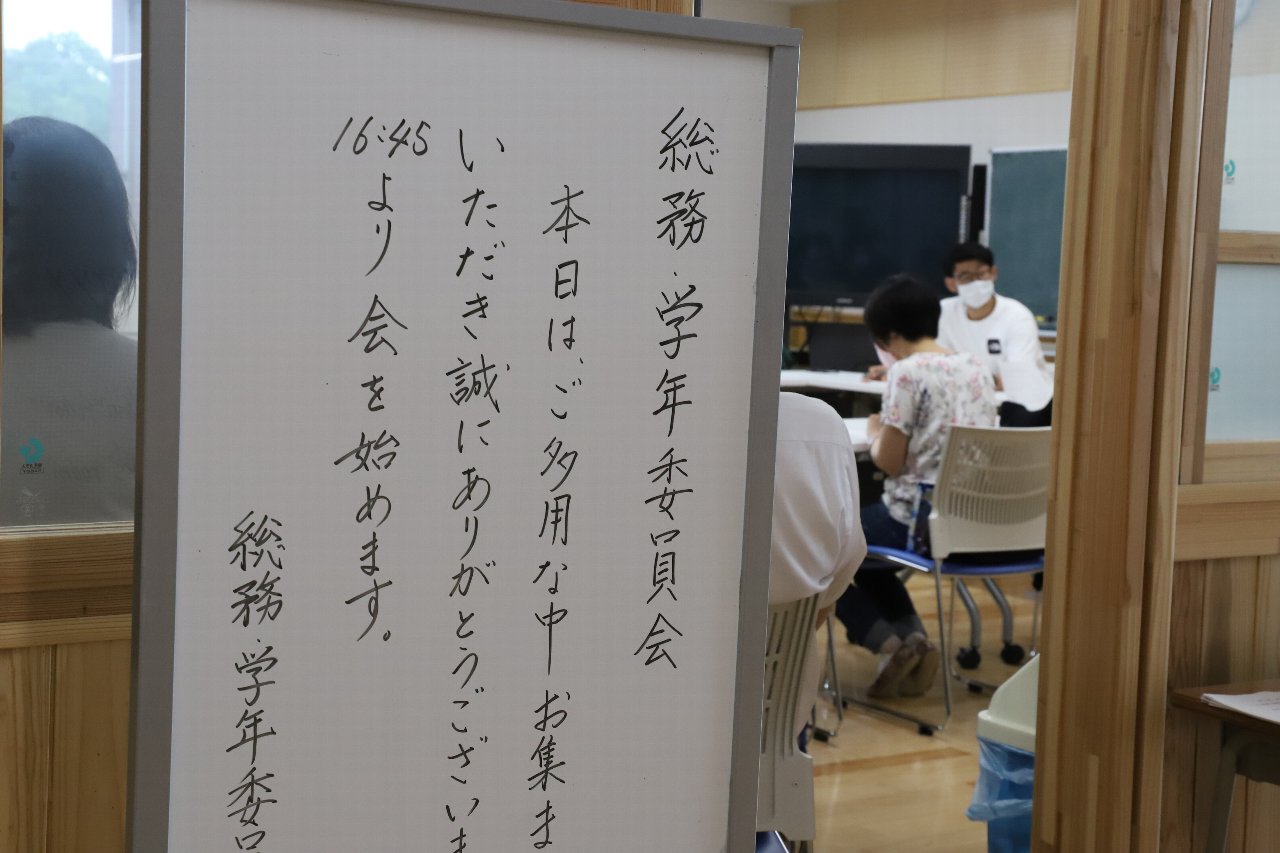 総務・学年委員会
本日は、ご多用な中お集ま
いただき誠にありがとうございま
16:45より会を始めます。
総務・学年委員